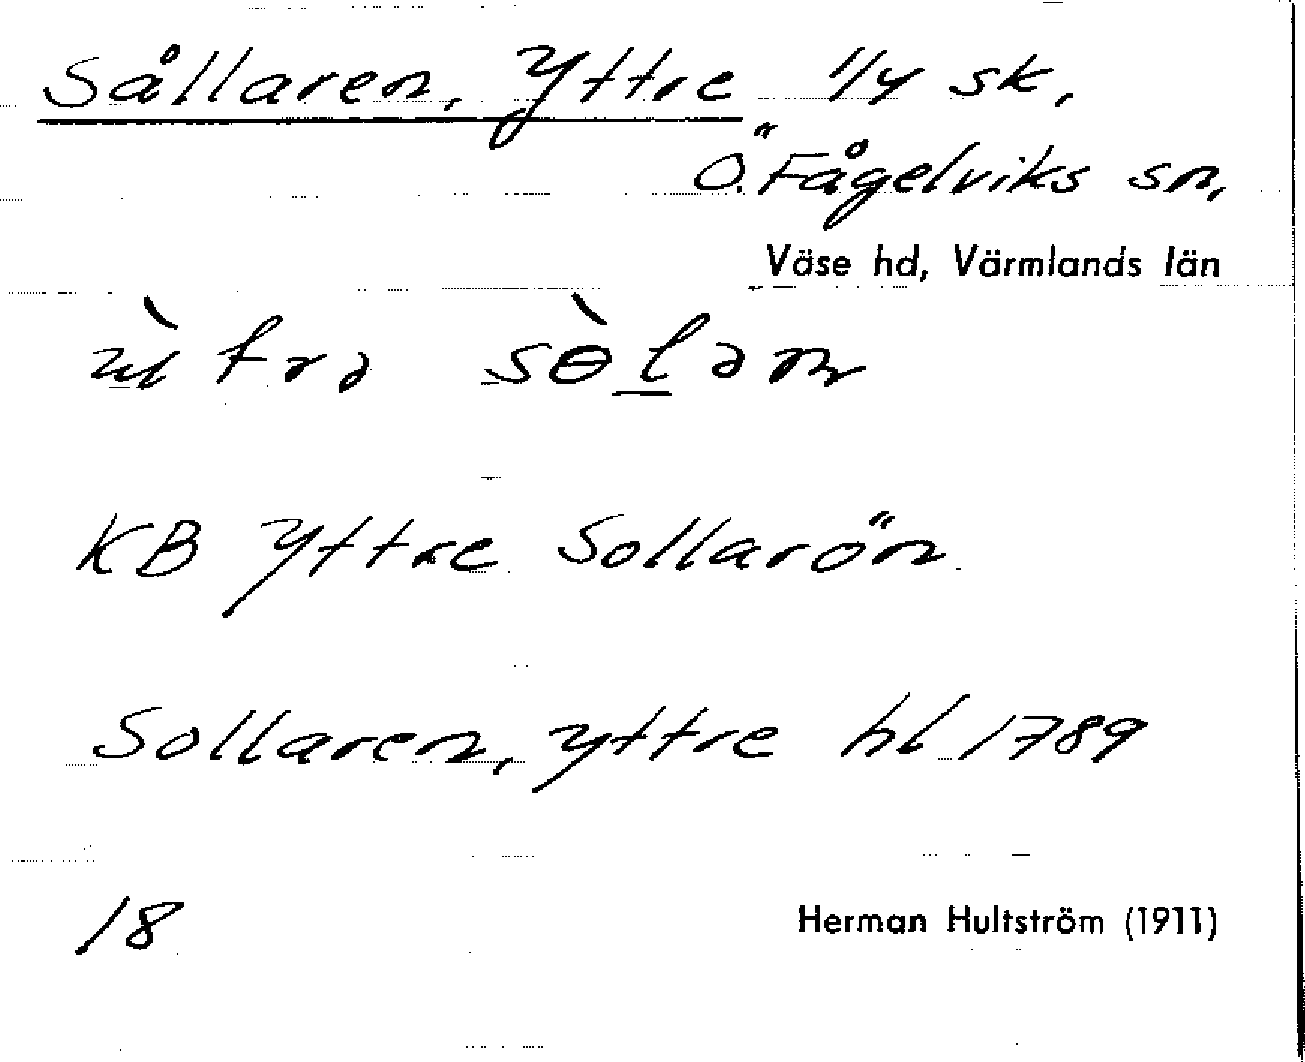 Sållaren, Yttre 1/4 sk,
Ö. Fågelviks sn,
Väse hd, Värmlands län
KB Yttre Sollarön
Sollaren, yttre hl 1789
18
Herman Hultström (1911)